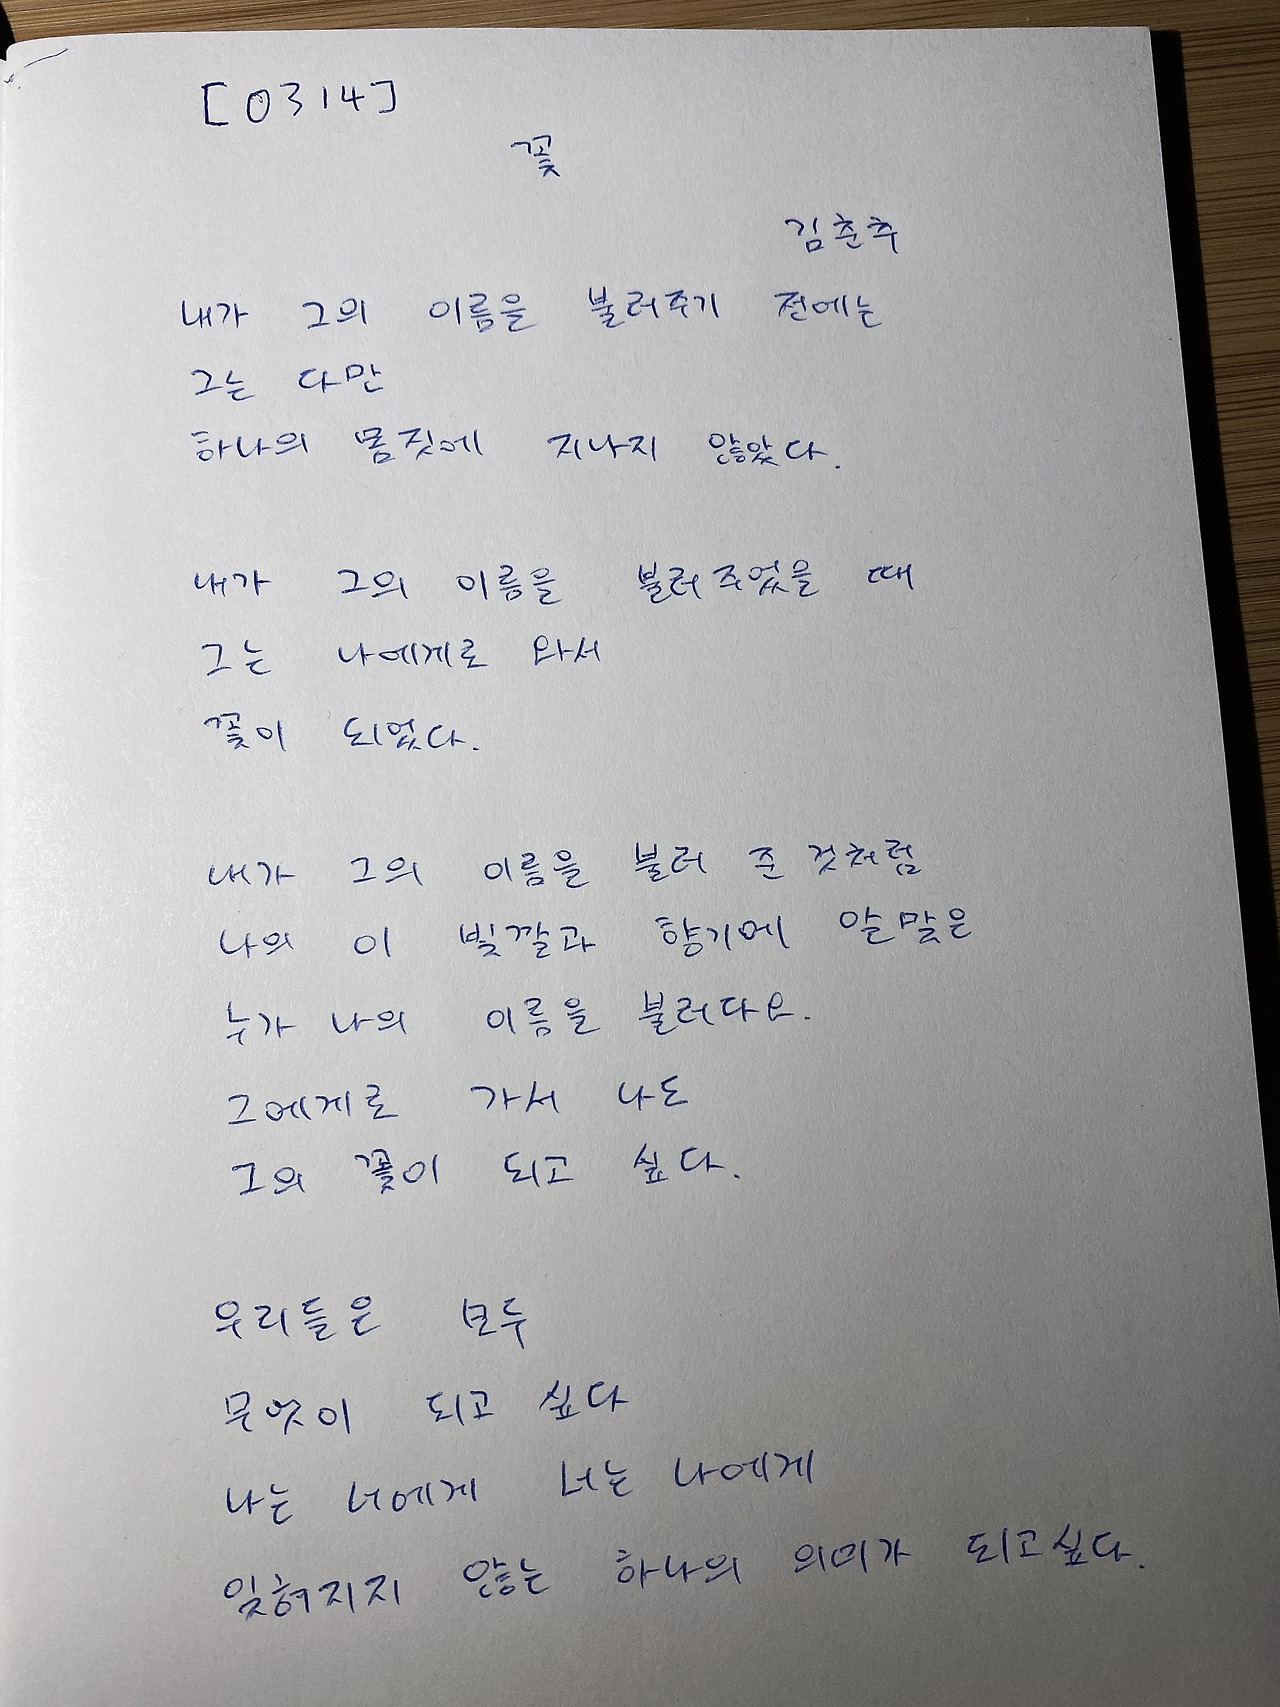 [0314]
꽃
김춘추
내가 그의 이름을 불러주기 전에는
그는 다만
하나의 몸짓에 지나지 않았다.
내가 그의 이름을 불러주었을 때
그는 나에게로 와서
꽃이 되었다.
내가 그의 이름을 불러 준 것처럼
나의 이 빛깔과 향기에 알맞은
누가 나의 이름을 불러다오.
그에게로 가서 나도
그의 꽃이 되고 싶다.
우리들은 모두
무엇이 되고 싶다
나는 너에게 너는 나에게
잊혀지지 않는 하나의 의미가 되고싶다.